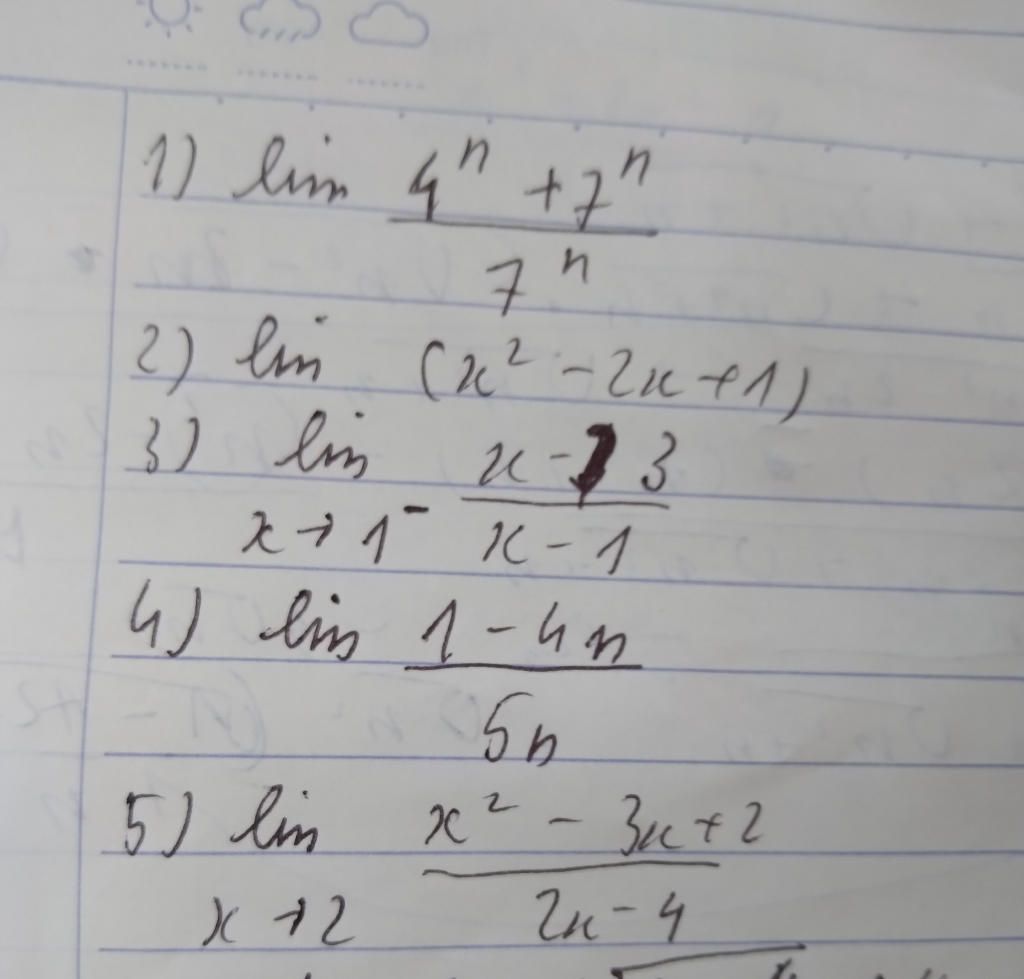 1) lim 4ⁿ + 7ⁿ
7ⁿ
2) lim (x² - 2x + 1)
3) lim x - 3
x → 1⁻ x - 1
4) lim 1 - 4n
5n
5) lim x² - 3x + 2
x → 2 2x - 4